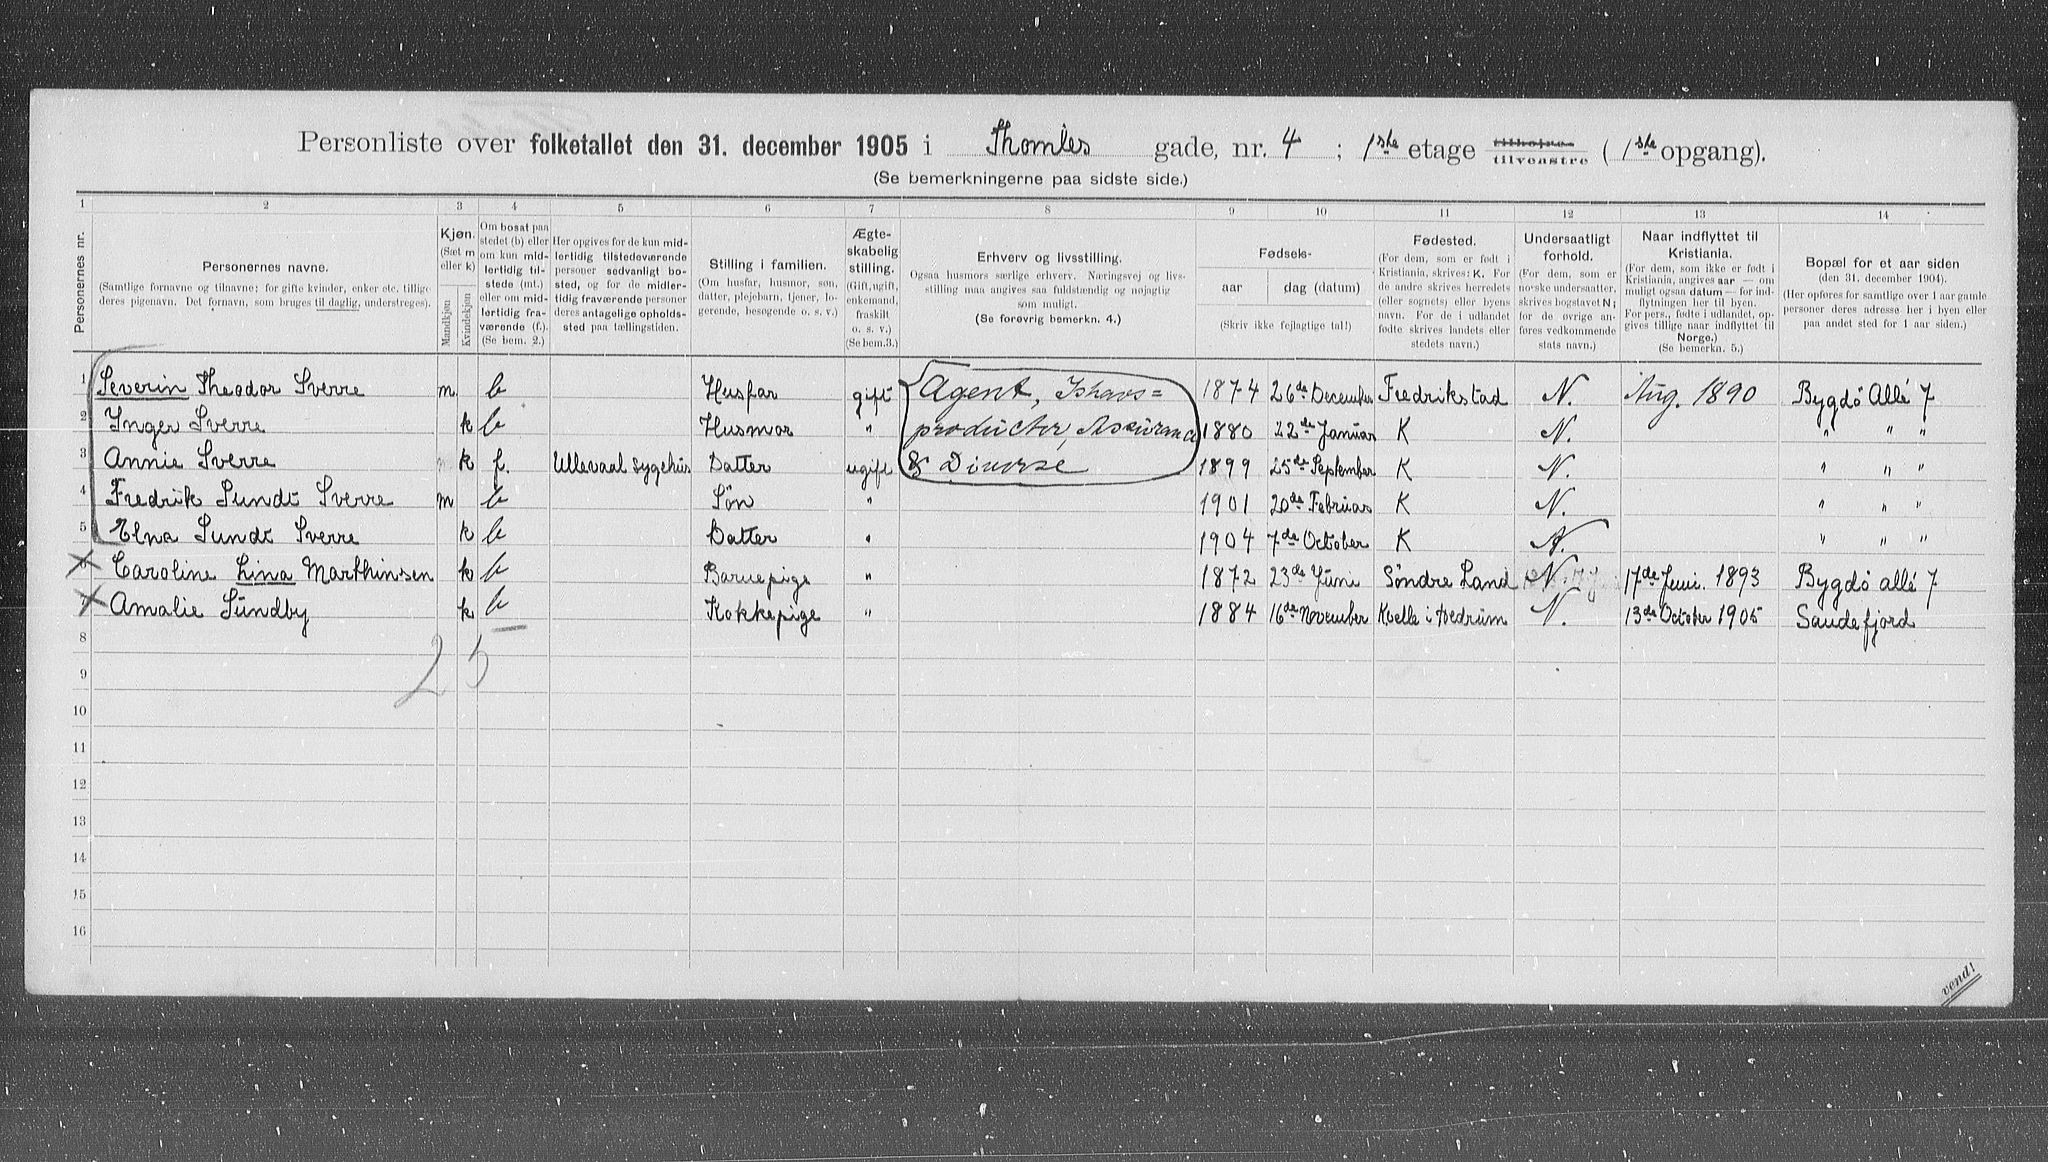 Personliste over folketallet den 31. december 1905 i Thomles gade, nr. 4 ; 1ste etage tilhøire tilvenstre ( 1ste opgang).
(Se bemerkningerne paa sidste side.)
1 2 3 4 5 6 7 8 9 10 11 12 13 14
Personernes nr.
Personernes navne.
(Samtlige fornavne og tilnavne; for gifte kvinder, enker etc. tillige
deres pigenavn. Det fornavn, som bruges til daglig, understreges).
Kjøn.
(Sæt m
eller k)
Mandkjøn
Kvindekjøn
Om bosat paa
stedet (b) eller
om kun mid-
lertidig til-
stede (mt.)
eller om mid-
lertidig fra-
værende (f.).
(Se bem. 2.)
Her opgives for de kun mid-
lertidig tilstedeværende
personer sedvanligt bo-
sted, og for de midler-
tidig fraværende personer
deres antagelige opholds-
sted paa tællingstiden.
Stilling i familien.
(Om husfar, husmor, søn,
datter, plejebarn, tjener, lo-
gerende, besøgende o. s. v.)
Ægte-
skabelig
stilling.
(Gift, ugift,
enkemand,
fraskilt
o. s. v.)
(Se bem.3.)
Erhverv og livsstilling.
Ogsaa husmors særlige erhverv. Næringsvej og livs-
stilling maa angives saa fuldstændig og nøjagtig
som muligt.
(Se forøvrig bemerkn. 4.)
Fødsels-
aar
dag (datum)
(Skriv ikke fejlagtige tal!)
Fødested.
(For dem, som er født i
Kristiania, skrives: K. For
de andre skrives herredets
(eller sognets) eller byens
navn. For de i udlandet
fødte skrives landets eller
stedets navn.)
Undersaatligt
forhold.
(For dem, som er
norske undersaatter,
skrives bogstavet N;
for de øvrige an-
føres vedkommende
stats navn.)
Naar indflyttet til
Kristiania.
(For dem, som ikke er født i
Kristiania, angives aar — om
muligt ogsaa datum — for ind-
flytningen her til byen.
For pers., fødte i udlandet, op-
gives tillige naar indflyttet til
Norge.)
(Se bemerkn. 5.)
Bopæl for et aar siden
(den 31. december 1904).
(Her opføres for samtlige over 1 aar gamle
personer deres adresse her i byen eller
paa andet sted for 1 aar siden.)
1 Severin Theodor Sverre m b Husfar gift Agent, Ishavs= 1874 26de December Fredrikstad N. Aug. 1890 Bygdø Allé 7
2 Inger Sverre k b Husmor " producter, Assurance 1880 22de Januar K N. " " "
3 Annie Sverre k f. Ullevaal sygehus Datter ugift & Diverse 1899 25de September K N. " " "
4 Fredrik Sundt Sverre m b Søn " 1901 20de Februar K N. " " "
5 Elna Sundt Sverre k b Datter " 1904 7de October K N. " " "
6 Caroline Lina Marthinsen k b Barnepige " 1872 23de Juni Søndre Land N. 17de Juni. 1893 Bygdø allé 7
7 Amalie Sundby k b Kokkepige " 1884 16de November Kvelle i Hedrum N. 13de October 1905 Sandefjord
8
2 5
9
10
11
12
13
14
15
16
vend!